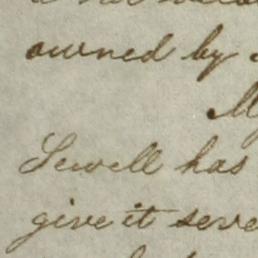 owned by
My
Sewell has
give it seve